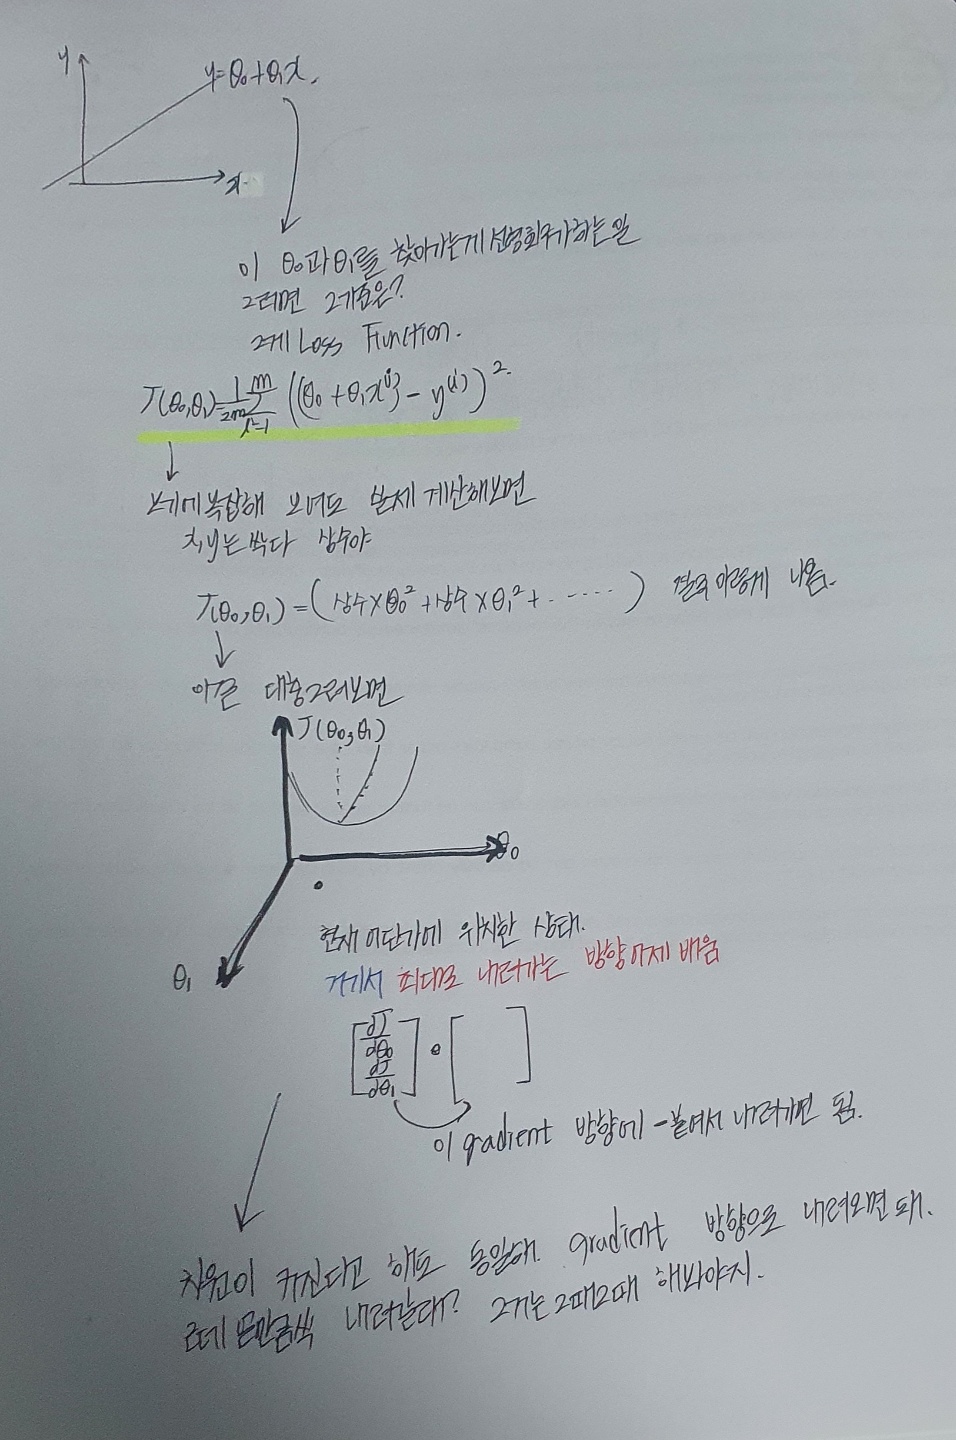 y
y=θ₀+θ₁x.
x
이 θ₀과 θ₁를 찾아가는게 선형회귀가하는일
그러면 그기준은?
그게 Loss Function.
J(θ₀,θ₁)=1/2m Σ i=1 m ((θ₀+θ₁x⁽ⁱ⁾)-y⁽ⁱ⁾)².
보기에복잡해 보여도 실제 계산해보면
x,y는 싹다 상수야
J(θ₀,θ₁)=(상수×θ₀²+상수×θ₁²+......) 결국 이렇게 나옴.
이걸 대충그려보면
J(θ₀,θ₁)
θ₀
θ₁
현재 어딘가에 위치한 상태.
거기서 최대로 내려가는 방향어제 배움
[dJ/dθ₀ dJ/dθ₁]·[ ]
이 gradient 방향에 -붙여서 내려가면 됨.
차원이 커진다고 해도 동일해. gradient 방향으로 내려오면 돼.
근데 얼만큼씩 내려간다? 그거는 그때그때 해봐야지.